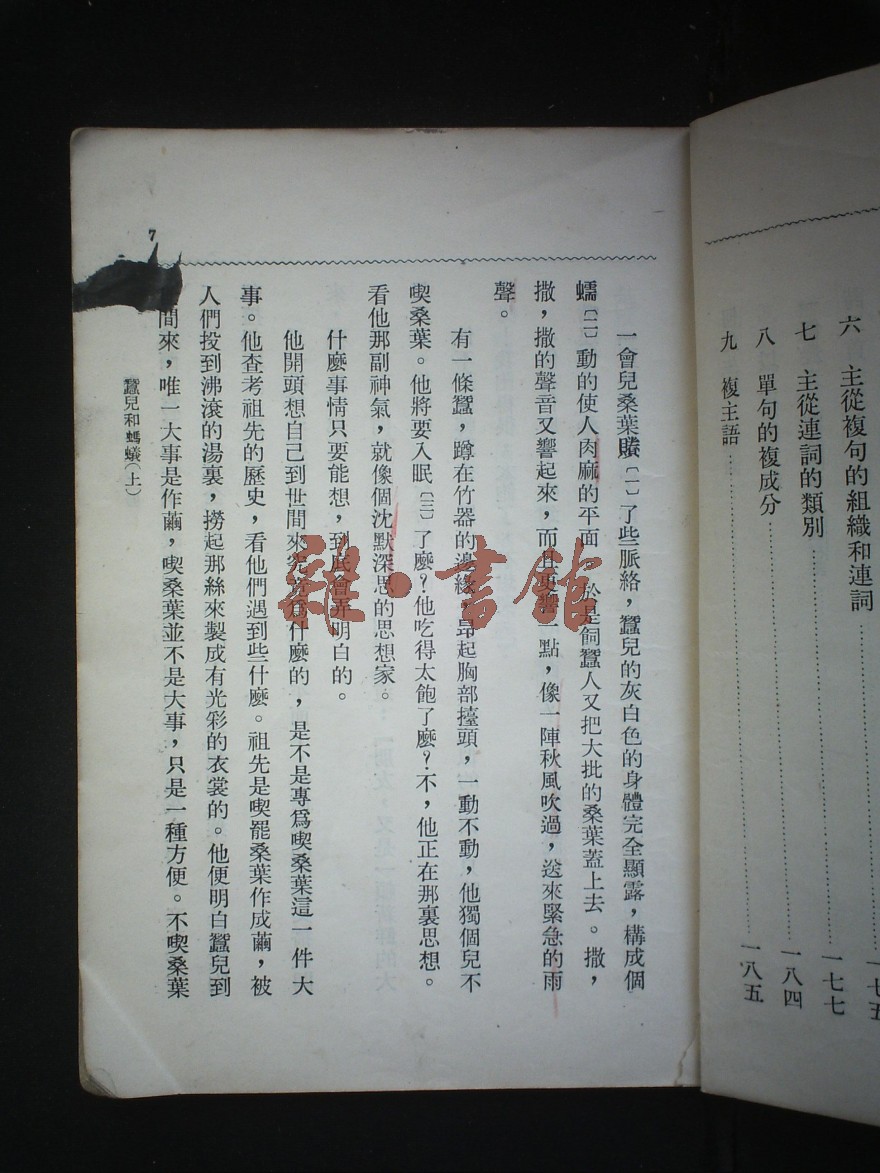 六 主從複句的組織和連詞……一七五
七 主從連詞的類別……一七七
八 單句的複成分……一八四
九 複主語……一八五
一會兒桑葉賸〔一〕了些脈絡,蠶兒的灰白色的身體完全顯露,構成個
蠕〔二〕動的使人肉麻的平面 於是飼蠶人又把大批的桑葉蓋上去。撒,
撒,撒的聲音又響起來,而且更響一點,像一陣秋風吹過,送來緊急的雨
聲。
有一條蠶,蹲在竹器的邊緣,昂起胸部擡頭,一動不動,他獨個兒不
喫桑葉。他將要入眠〔三〕了麼?他吃得太飽了麼?不,他正在那裏思想。
看他那副神氣,就像個沈默深思的思想家。
什麼事情只要能想,到底會弄明白的。
他開頭想自己到世間來究竟爲什麼的,是不是專爲喫桑葉這一件大
事。他查考祖先的歷史,看他們遇到些什麼。祖先是喫罷桑葉作成繭,被
人們投到沸滾的湯裏,撈起那絲來製成有光彩的衣裳的。他便明白蠶兒到
間來,唯一大事是作繭,喫桑葉並不是大事,只是一種方便。不喫桑葉
蠶兒和螞蟻(上)
7
雜·書館